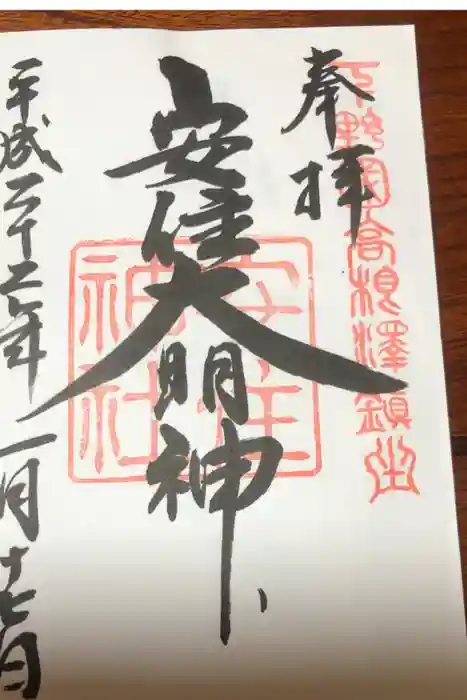 奉拝
下野國高根澤鎮坐
安住大明神
安住神社
平成二十七年一月十七日